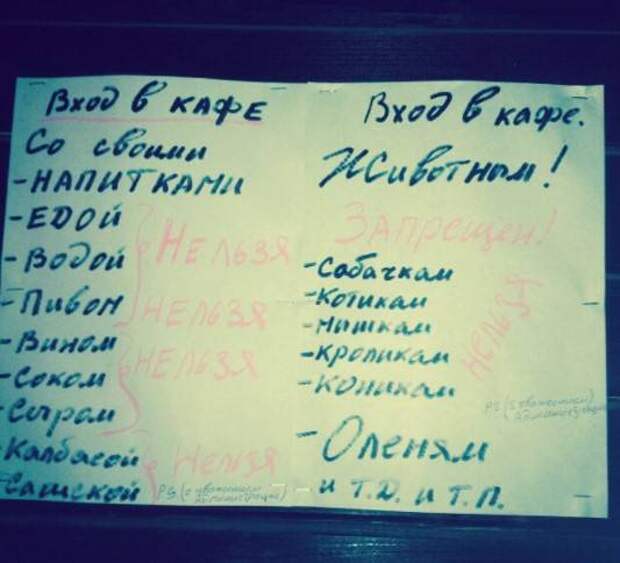 Вход в КАФЕ
Со своими
-НАПИТКАМИ
-ЕДОЙ
-Водой
НЕЛЬЗЯ
-Пивом
НЕЛЬЗЯ
-Вином
НЕЛЬЗЯ
-Соком
-Сыром
-Калбасой
Нельзя
-Сашской
PS (с уважением администрация)
Вход в кафе.
Животным!
ЗАПРЕЩЕН!
-Собачкам
-Котикам
-Мишкам
-Кроликам
-Коникам
НЕЛЬЗЯ
PS (с уважением администрация)
-Оленям
и т.д. и т.п.